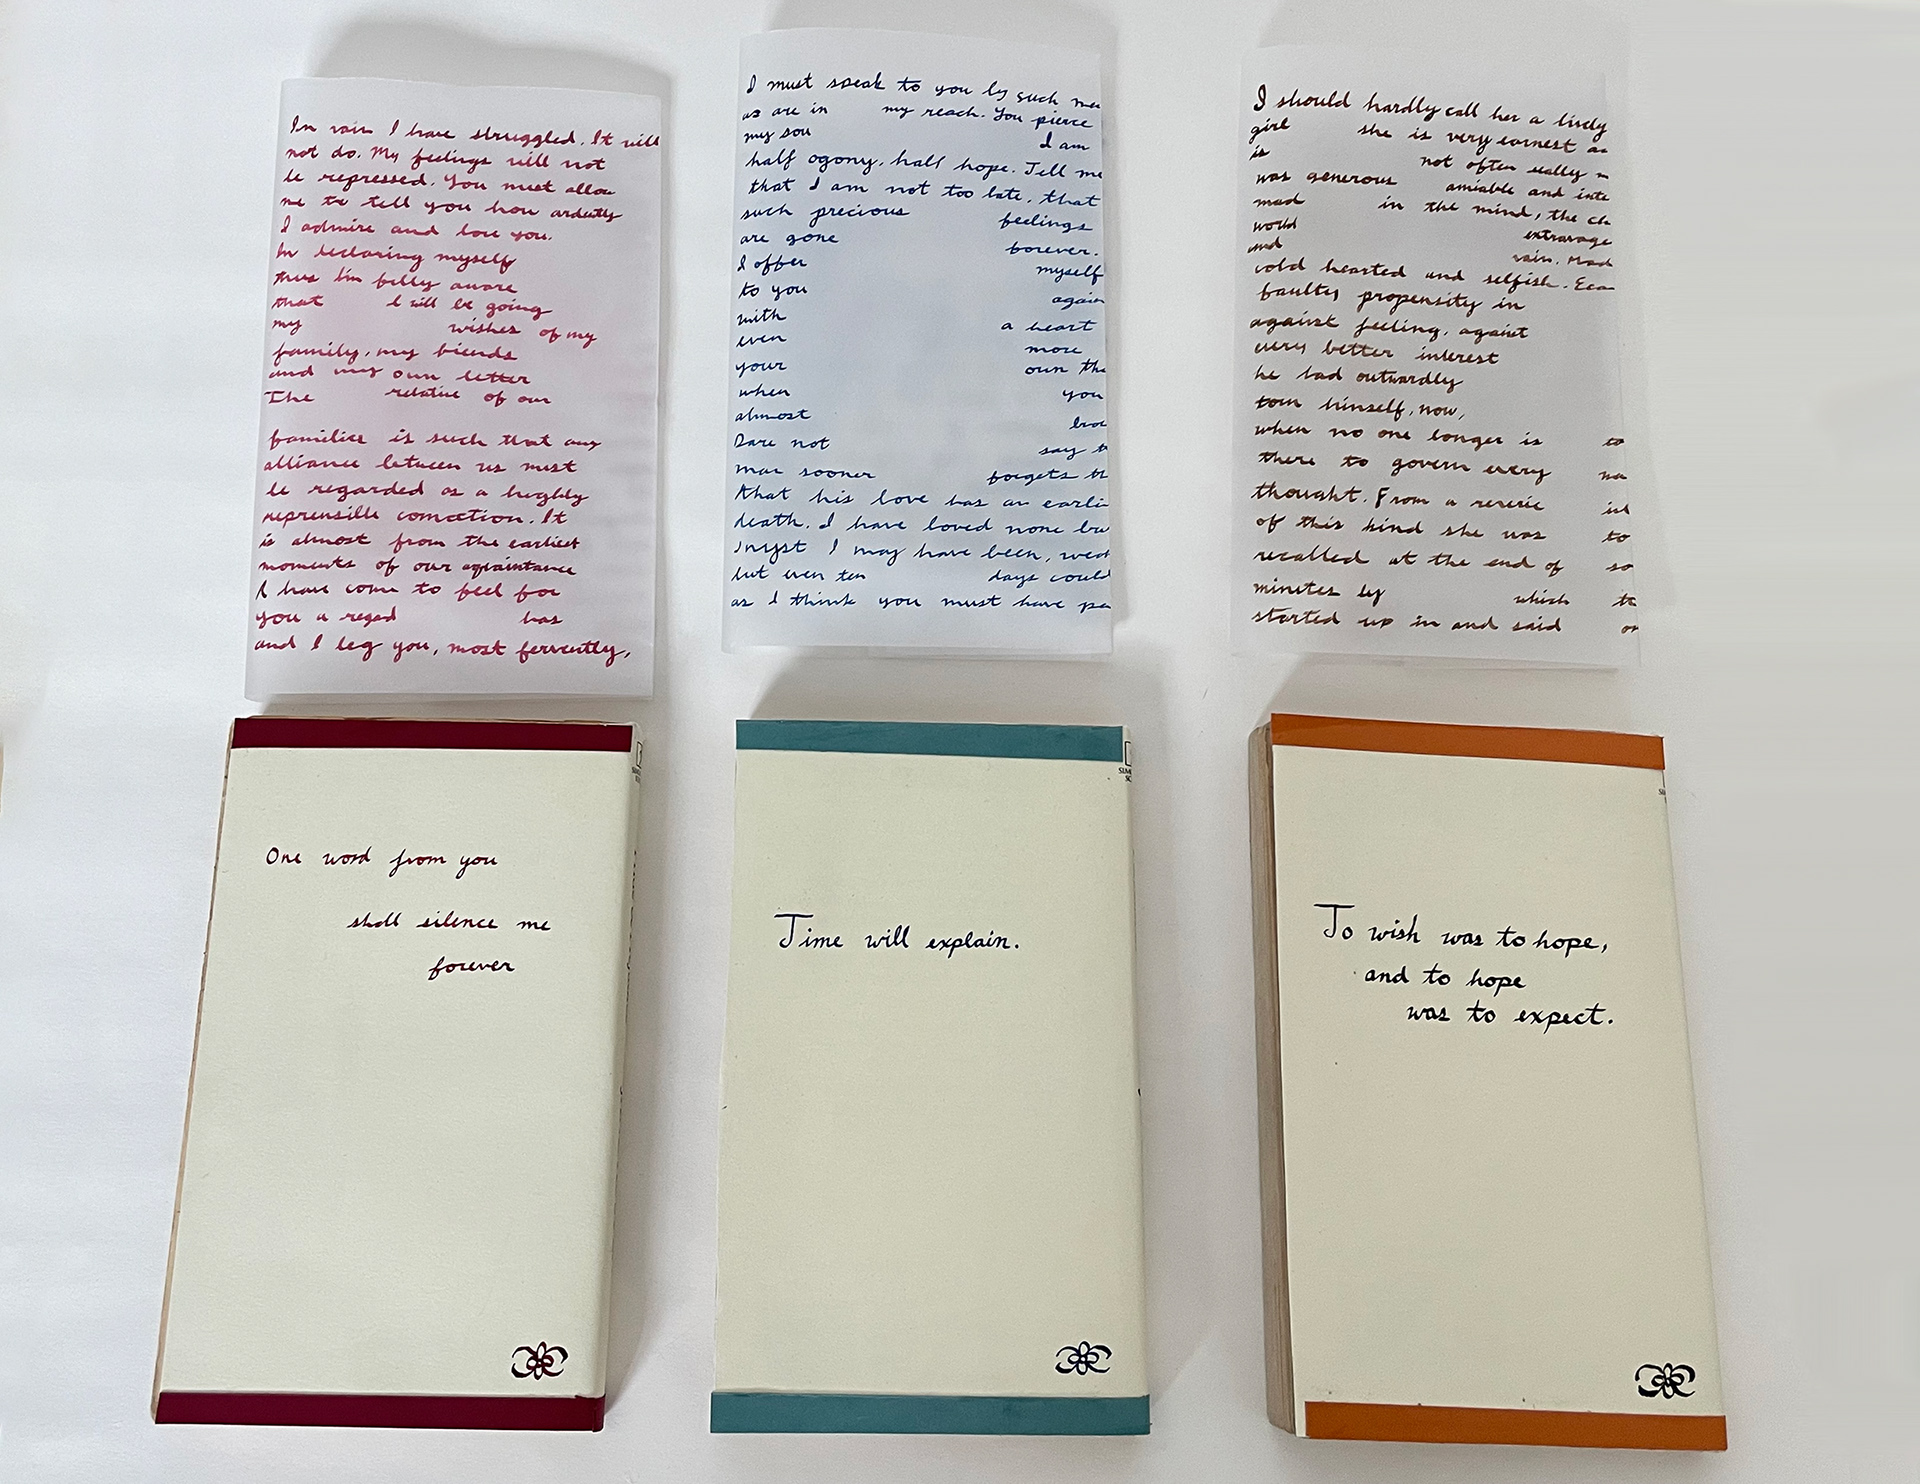 In vain I have struggled. It will
not do. My feelings will not
be repressed. You must allow
me to tell you how ardently
I admire and love you.
In declaring myself
thus I'm fully aware
that I will be going
my wishes of my
family, my friends
and my own better
The relative of our
families is such that any
alliance between us must
be regarded as a highly
reprensible connection. It
is almost from the earliest
moments of our aquaintance
I have come to feel for
you a regard has
and I beg you, most fervently,
I must speak to you by such
as are in my reach. You pierce
my sou I am
half agony, half hope. Tell me
that I am not too late, that
such precious feelings
are gone forever.
I offer myself
to you again
with a heart
even more
your own
when you
almost
Dare not say
man sooner forgets
that his love has an
death. I have loved none
I may have been,
but even ten days could
as I think you must have
I should hardly call her a lively
girl she is very earnest
is not often really
was generous amiable and
mad in the mind, the
world
and vain. Mad
cold hearted and selfish.
faulty propensity in
against feeling, against
every better interest
he had outwardly
torn himself, now,
when no one longer is to
there to govern every
thought. From a reverie
of this kind she was to
recalled at the end of so
minutes by which
started up in and said
One word from you
shall silence me
forever
Time will explain.
To wish was to hope,
and to hope
was to expect.